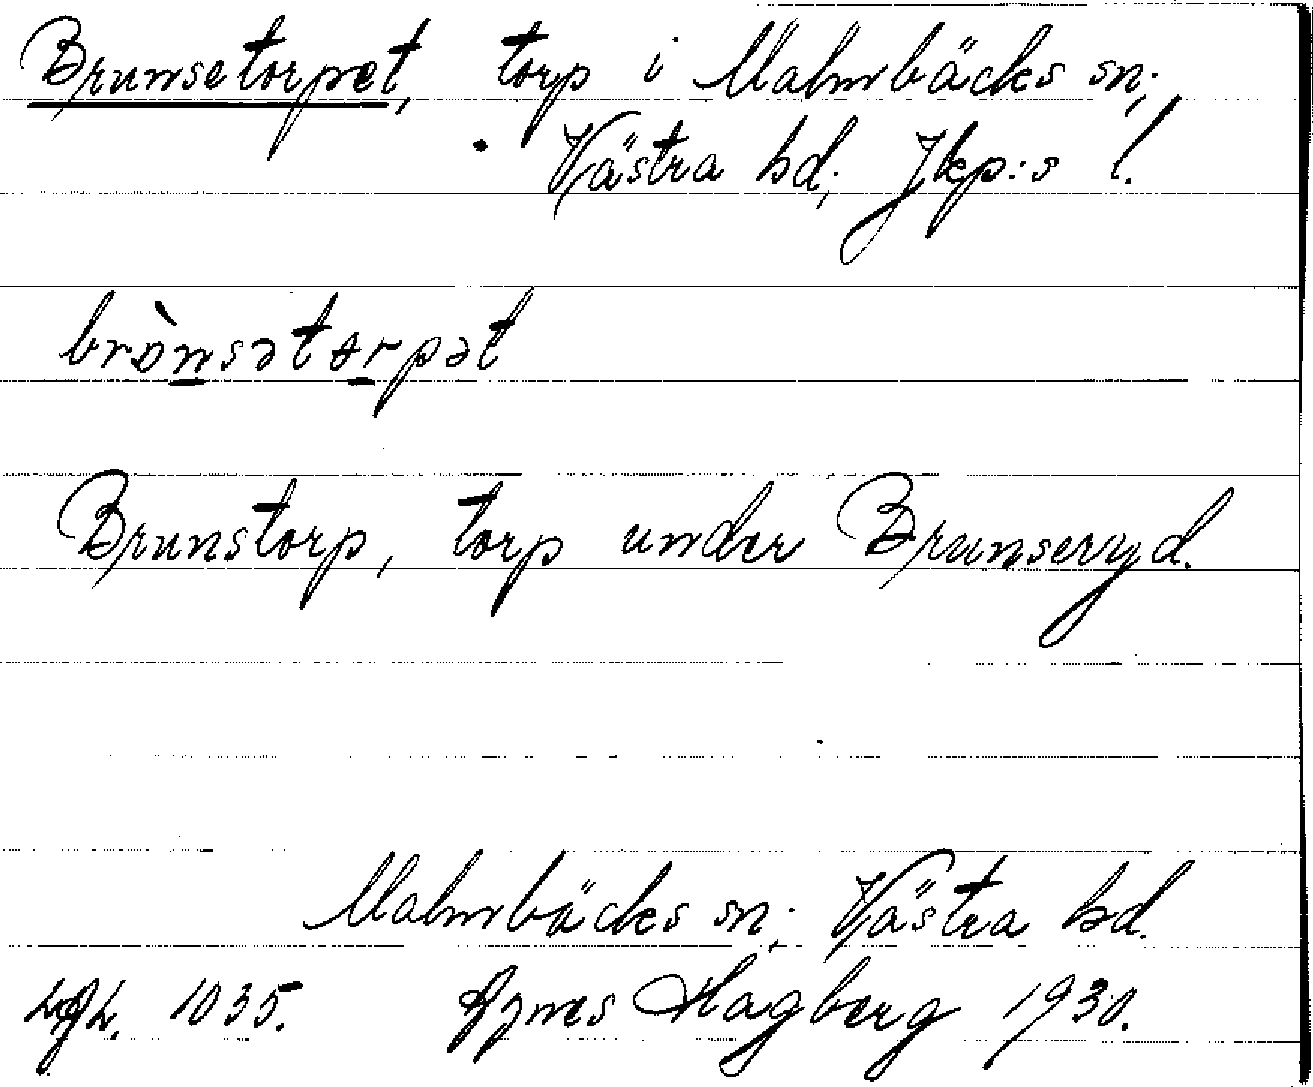 Brunsetorpet, torp i Malmbäcks sn;
Västra hd; Jkp:s l.
brònsətɵrpət
Brunstorp, torp under Brunseryd.
Malmbäcks sn; Västra hd.
1035. Agnes Hagberg 1930.